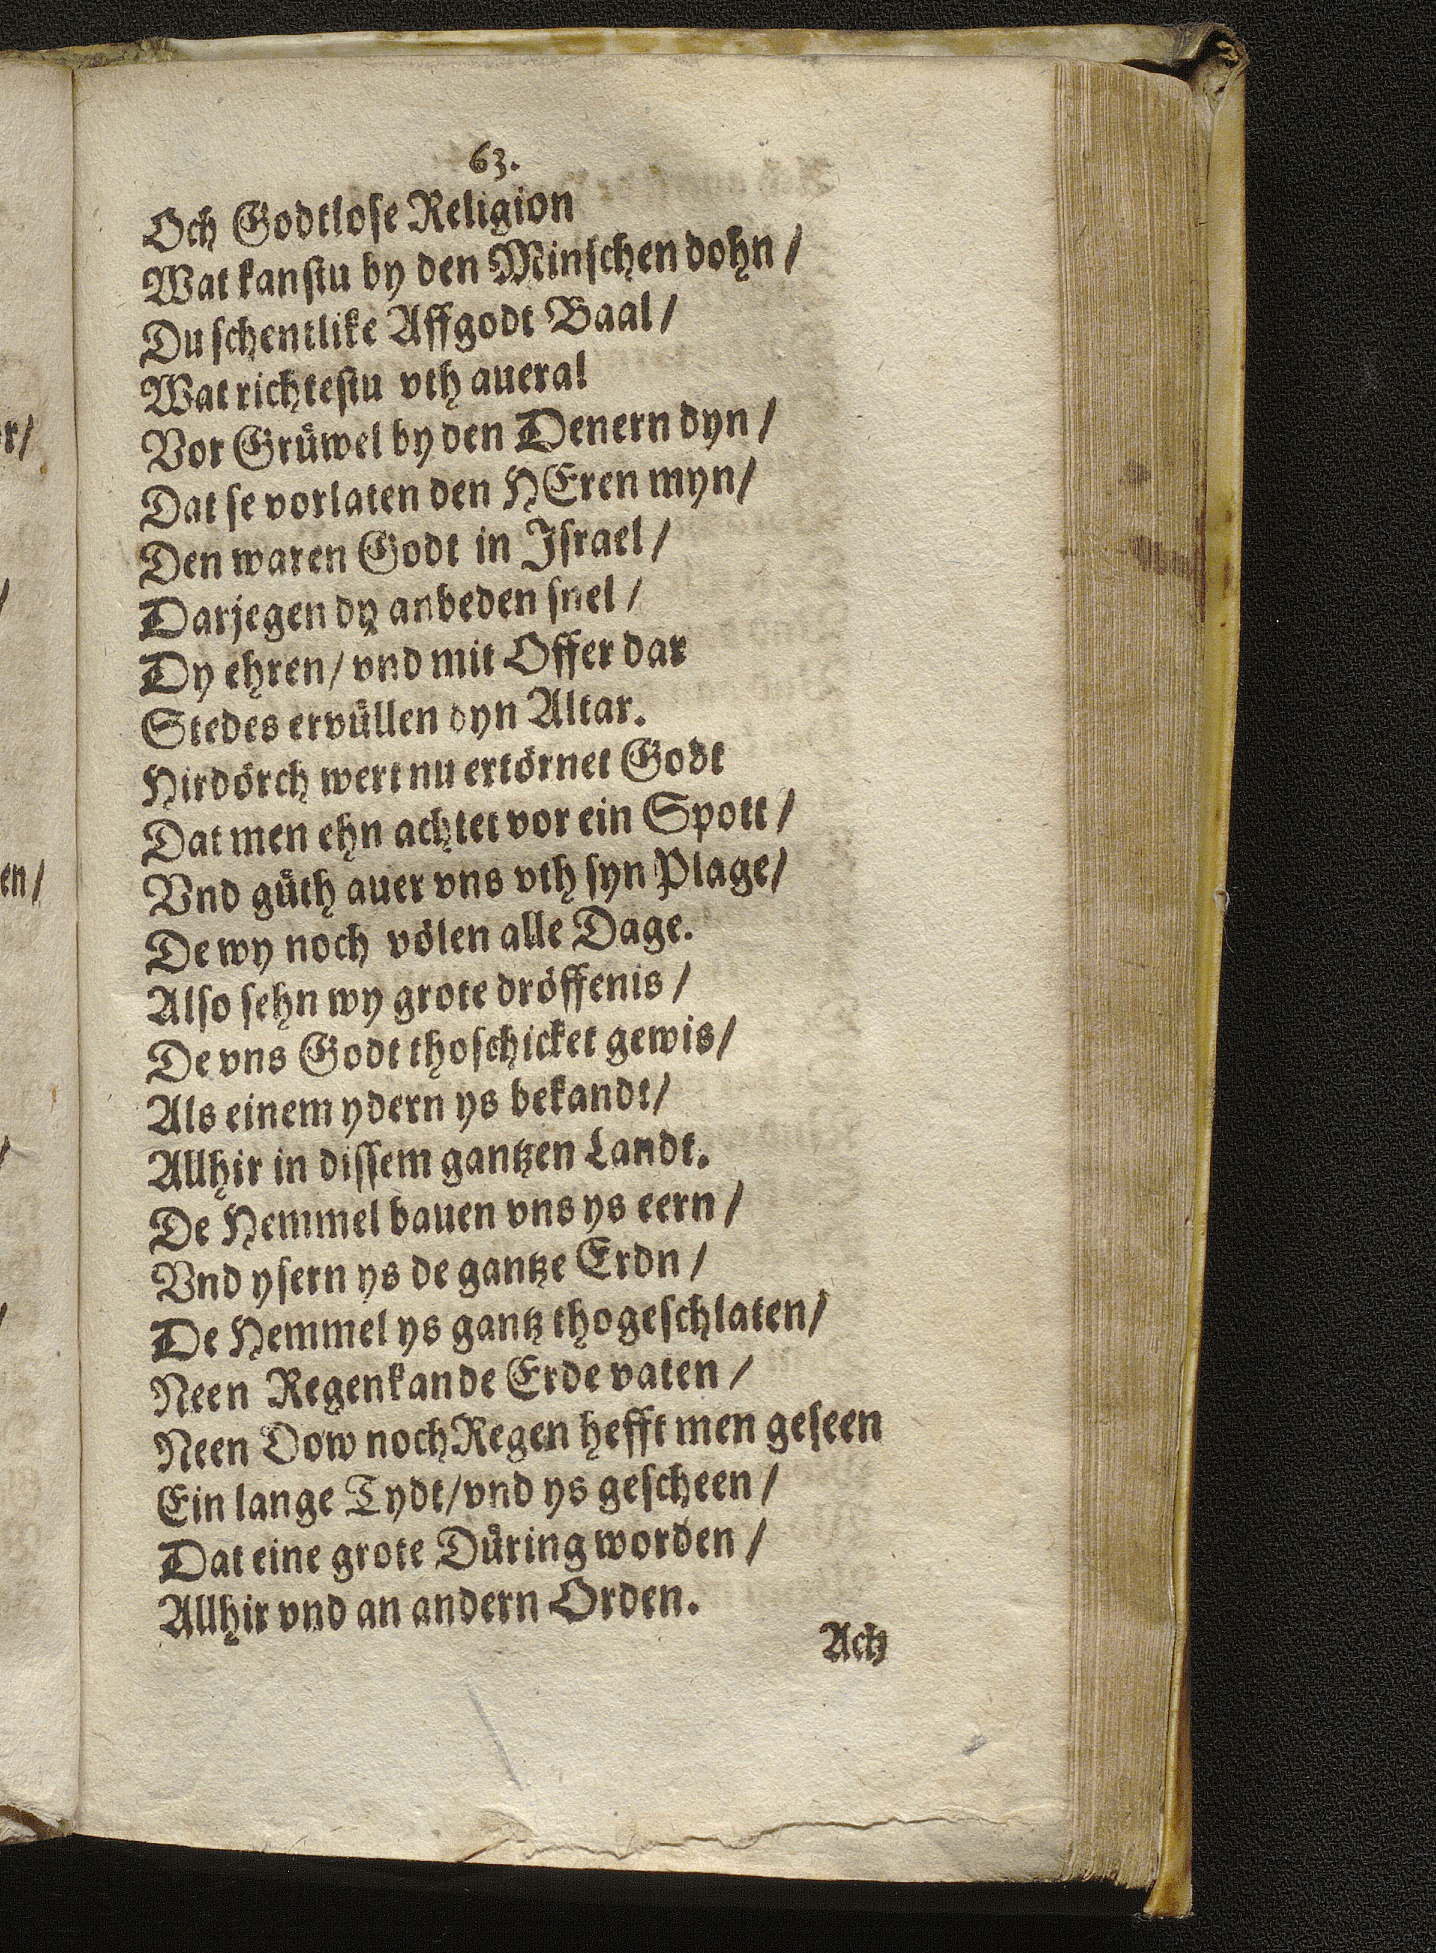 63.
Och Godtlose Religion
Wat kanstu by den Minschen dohn /
Du schentlike Affgodt Baal /
Wat richtestu vth aueral
Vor Grüwel by den Denern dyn /
Dat se vorlaten den HEren myn /
Den waren Godt in Israel /
Darjegen dy anbeden snel /
Dy ehren / vnd mit Offer dar
Stedes ervüllen dyn Altar.
Hirdörch wert nu ertörnet Godt
Dat men ehn achtet vor ein Spott /
Vnd güth auer vns vth syn Plage /
De wy noch völen alle Dage.
Also sehn wy grote dröffenis /
De vns Godt thoschicket gewis /
Als einem ydern ys bekandt /
Allhir in dissem gantzen Landt.
De Hemmel bauen vns ys eern /
Vnd ysern ys de gantze Erdn /
De Hemmel ys gantz thogeschlaten /
Neen Regen kan de Erde vaten /
Neen Dow noch Regen hefft men geseen
Ein lange Tydt / vnd ys gescheen /
Dat eine grote Düring worden /
Allhir vnd an andern Orden.
Ach
r /
en /